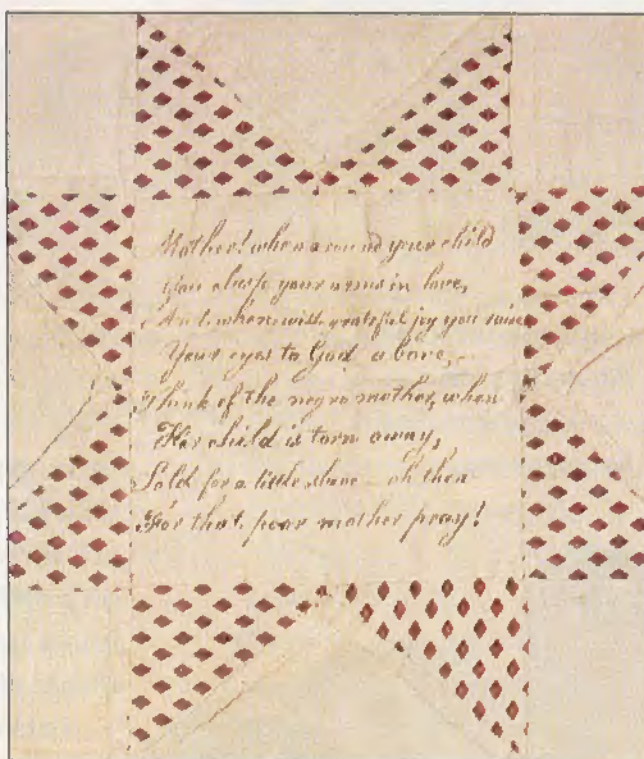 Mother! when around your child
You clasp your arms in love,
And when with grateful joy you raise
Your eyes to God above,—
Think of the negro mother, when
Her child is torn away,
Sold for a little slave — oh then
For that poor mother pray!